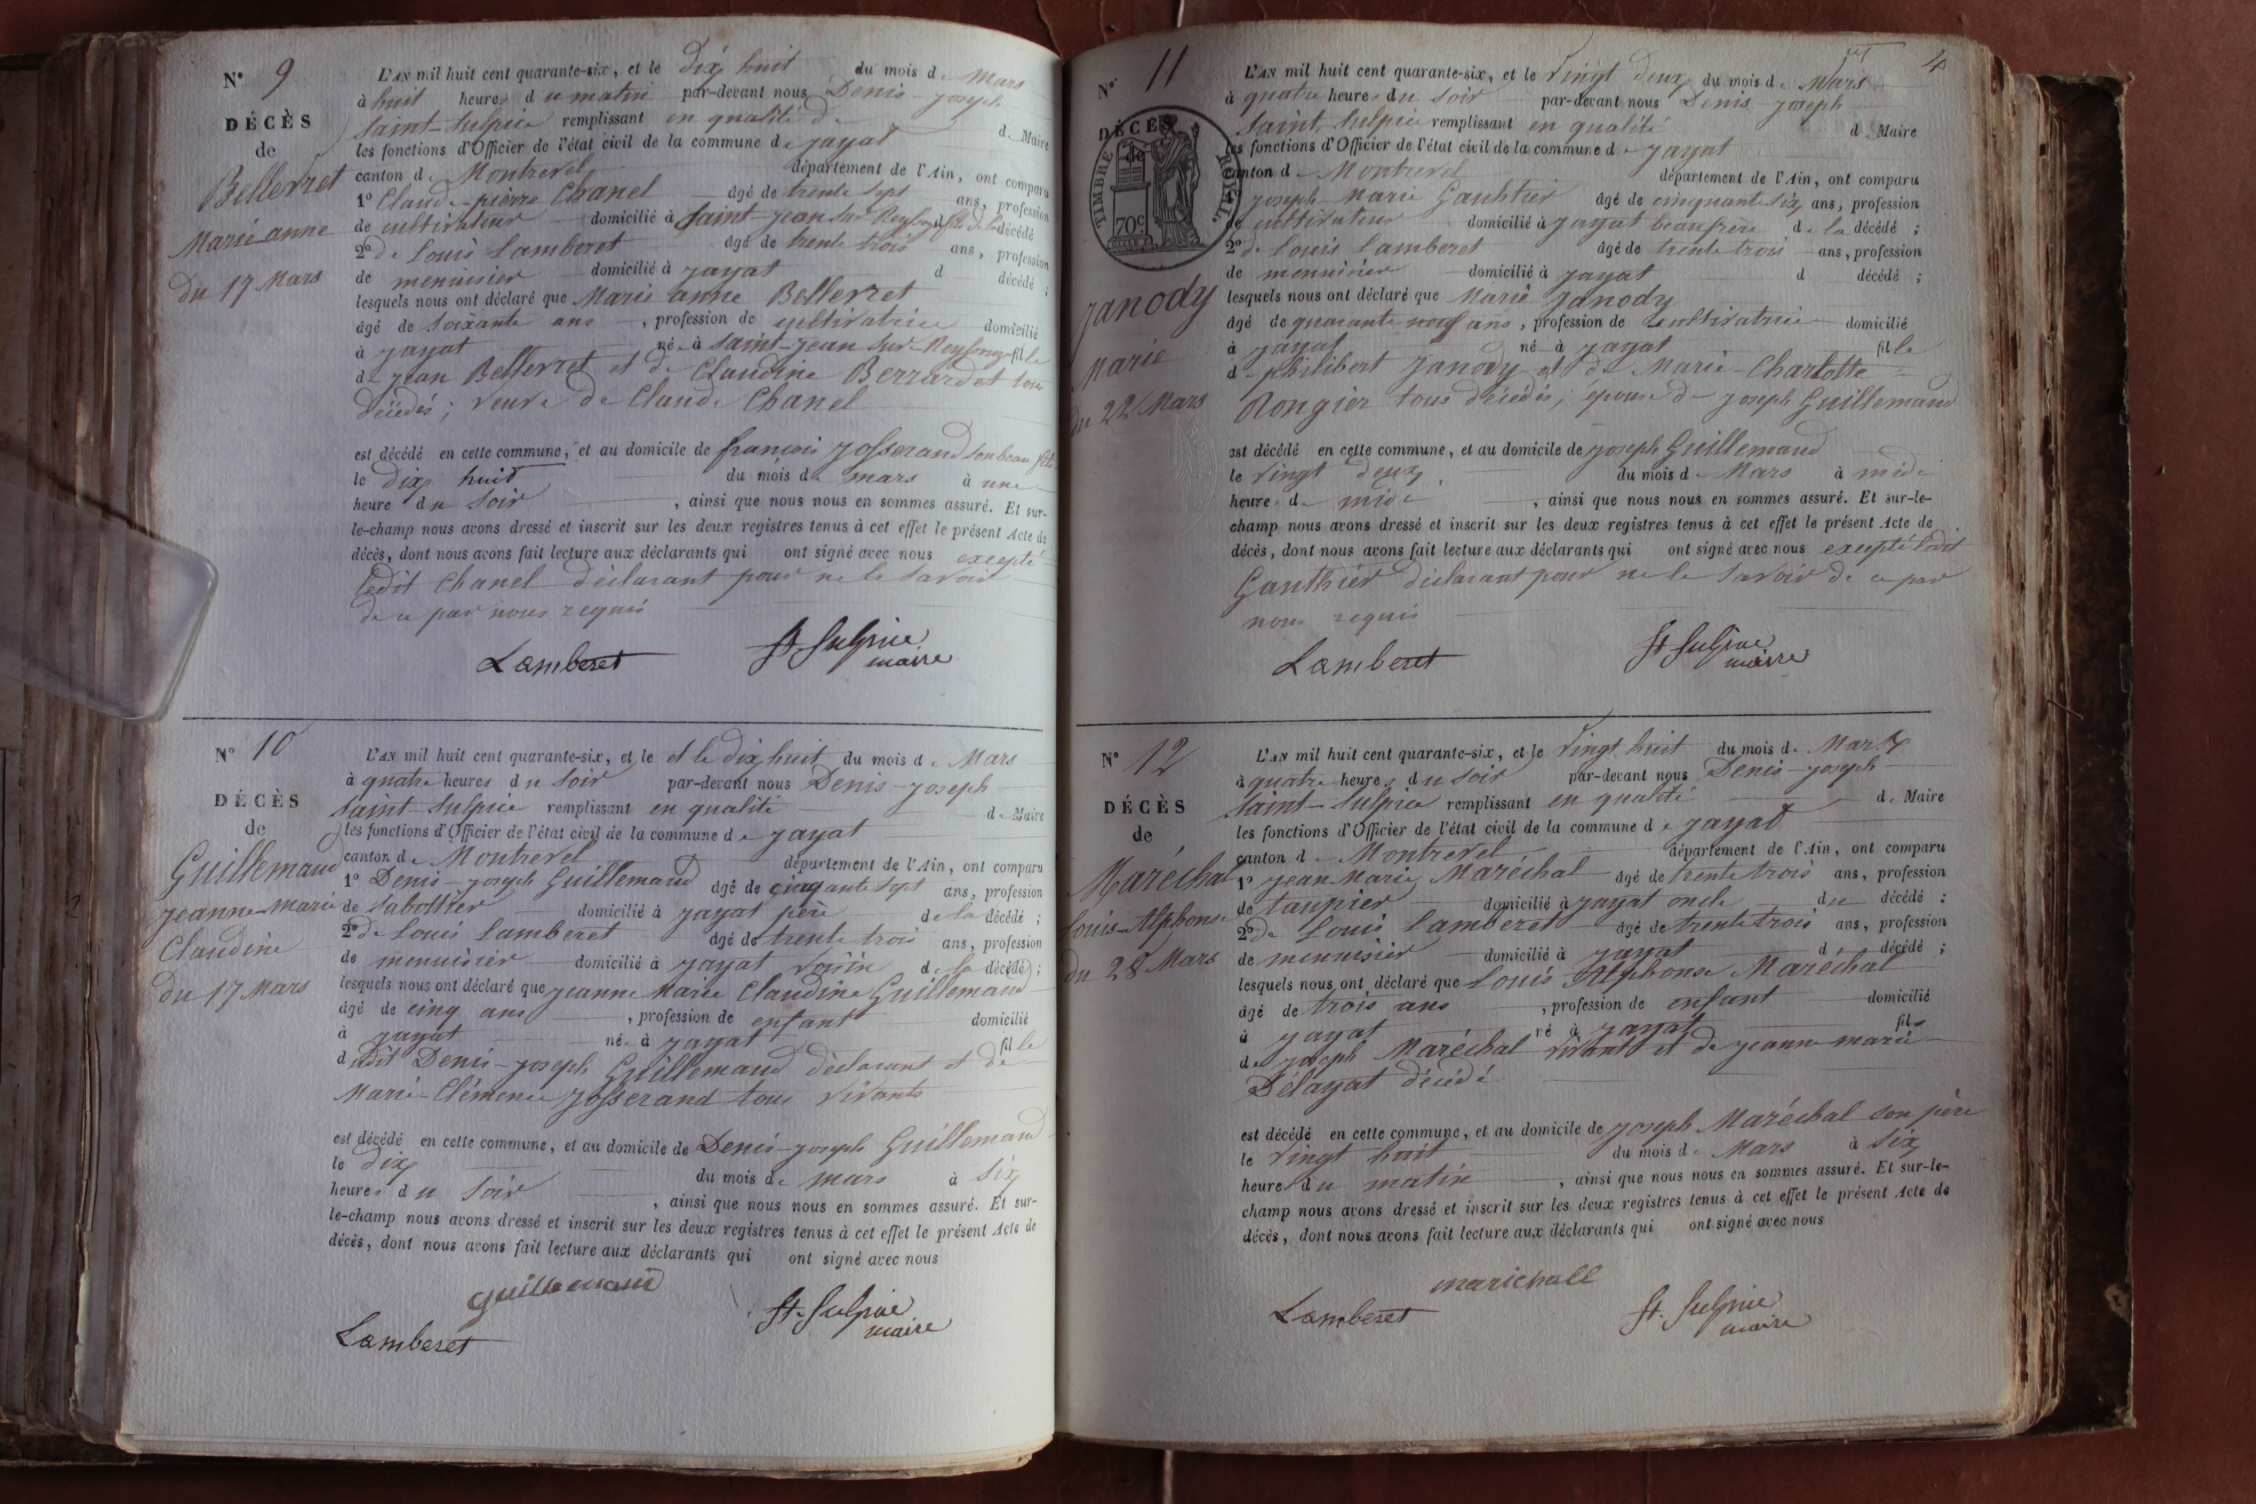 N° 9
DÉCÈS
de
Bellevret
Marie anne
du 17 Mars
L'AN mil huit cent quarante-six, et le Dix huit du mois de Mars
à huit heures du matin par-devant nous Denis-joseph
Saint-Sulpice remplissant en qualité de
d. Maire
les fonctions d'Officier de l'état civil de la commune de jayat
canton de Montrevel département de l'Ain, ont comparu
1° Claude-pierre Chanel âgé de trente sept ans, profession
de cultivateur domicilié à Saint-jean sur Reyssouze fils de la décédé
2° de Louis Lamberet âgé de trente trois ans, profession
de menuisier domicilié à jayat d décédé ;
lesquels nous ont déclaré que Marie anne Bellevret
âgé de soixante ans, profession de cultivatrice domicilié
à jayat né à Saint-jean-sur-Reyssouze fille
de jean Bellevret et de Claudine Berrardet tous
Décédés ; veuve de Claude Chanel
est décédé en cette commune, et au domicile de françois josserand son beau fils
le dix huit du mois de mars à une
heure du soir, ainsi que nous nous en sommes assuré. Et sur-
le-champ nous avons dressé et inscrit sur les deux registres tenus à cet effet le présent Acte de
décès, dont nous avons fait lecture aux déclarants qui ont signé avec nous excepté
ledit Chanel déclarant pour ne le savoir
de ce par nous requis
Lamberet St Sulpice
maire
N° 10
DÉCÈS
de
Guillemaud
jeanne Marie
Claudine
du 17 Mars
L'AN mil huit cent quarante-six, et le et le dix huit du mois de Mars
à quatre heures du soir par-devant nous Denis-joseph
Saint-Sulpice remplissant en qualité
d. Maire
les fonctions d'Officier de l'état civil de la commune de jayat
canton de Montrevel département de l'Ain, ont comparu
1° Denis-joseph Guillemaud âgé de cinquante sept ans, profession
de sabottier domicilié à jayat père de la décédé ;
2° de Louis Lamberet âgé de trente trois ans, profession
de menuisier domicilié à jayat voisin de la décédé ;
lesquels nous ont déclaré que jeanne Marie Claudine Guillemaud
âgé de cinq ans, profession de enfant domicilié
à jayat née à jayat fille
dudit Denis-joseph Guillemaud déclarant et de
Marie-Clémence josserand tous vivants
est décédé en cette commune, et au domicile de Denis-joseph Guillemaud
le dix du mois de mars à six
heures du soir, ainsi que nous nous en sommes assuré. Et sur-
le-champ nous avons dressé et inscrit sur les deux registres tenus à cet effet le présent Acte de
décès, dont nous avons fait lecture aux déclarants qui ont signé avec nous
guillemaud
Lamberet St. Sulpice
maire
4
N° 11
DÉCÈS
de
TIMBRE ROYAL.
70c
janody
Marie
du 22 Mars
L'AN mil huit cent quarante-six, et le vingt deux du mois de Mars
à quatre heures du soir par-devant nous Denis-joseph
Saint-Sulpice remplissant en qualité d. Maire
les fonctions d'Officier de l'état civil de la commune de jayat
canton de Montrevel département de l'Ain, ont comparu
joseph-Marie Gauthier âgé de cinquante six ans, profession
de cultivateur domicilié à jayat beaufrère de la décédé ;
2° de Louis Lamberet âgé de trente trois ans, profession
de menuisier domicilié à jayat d décédé ;
lesquels nous ont déclaré que Marie janody
âgé de quarante neuf ans, profession de cultivatrice domicilié
à jayat née à jayat fille
de philibert janody et de Marie-Charlotte
Rongier tous décédés, épouse de joseph Guillemaud
est décédé en cette commune, et au domicile de joseph Guillemaud
le vingt deux du mois de Mars à midi
heure de midi, ainsi que nous nous en sommes assuré. Et sur-le-
champ nous avons dressé et inscrit sur les deux registres tenus à cet effet le présent Acte de
décès, dont nous avons fait lecture aux déclarants qui ont signé avec nous excepté ledit
Gauthier déclarant pour ne le savoir de ce par
nous requis
Lamberet St Sulpice
maire
N° 12
DÉCÈS
de
Maréchal
Louis-Alphonse
du 28 Mars
L'AN mil huit cent quarante-six, et le vingt huit du mois de Mars
à quatre heures du soir par-devant nous Denis-joseph
Saint-Sulpice remplissant en qualité d. Maire
les fonctions d'Officier de l'état civil de la commune de jayat
canton de Montrevel département de l'Ain, ont comparu
1° jean Marie Maréchal âgé de trente trois ans, profession
de taupier domicilié à jayat oncle du décédé :
2° de Louis Lamberet âgé de trente trois ans, profession
de menuisier domicilié à jayat d décédé ;
lesquels nous ont déclaré que Louis Alphonse Maréchal
âgé de trois ans, profession de enfant domicilié
à jayat né à jayat fils
de joseph Maréchal vivant et de jeanne marie
Délayat décédé
est décédé en cette commune, et au domicile de joseph Maréchal son père
le vingt huit du mois de Mars à six
heures du matin, ainsi que nous nous en sommes assuré. Et sur-le-
champ nous avons dressé et inscrit sur les deux registres tenus à cet effet le présent Acte de
décès, dont nous avons fait lecture aux déclarants qui ont signé avec nous
marichall
Lamberet St. Sulpice
maire